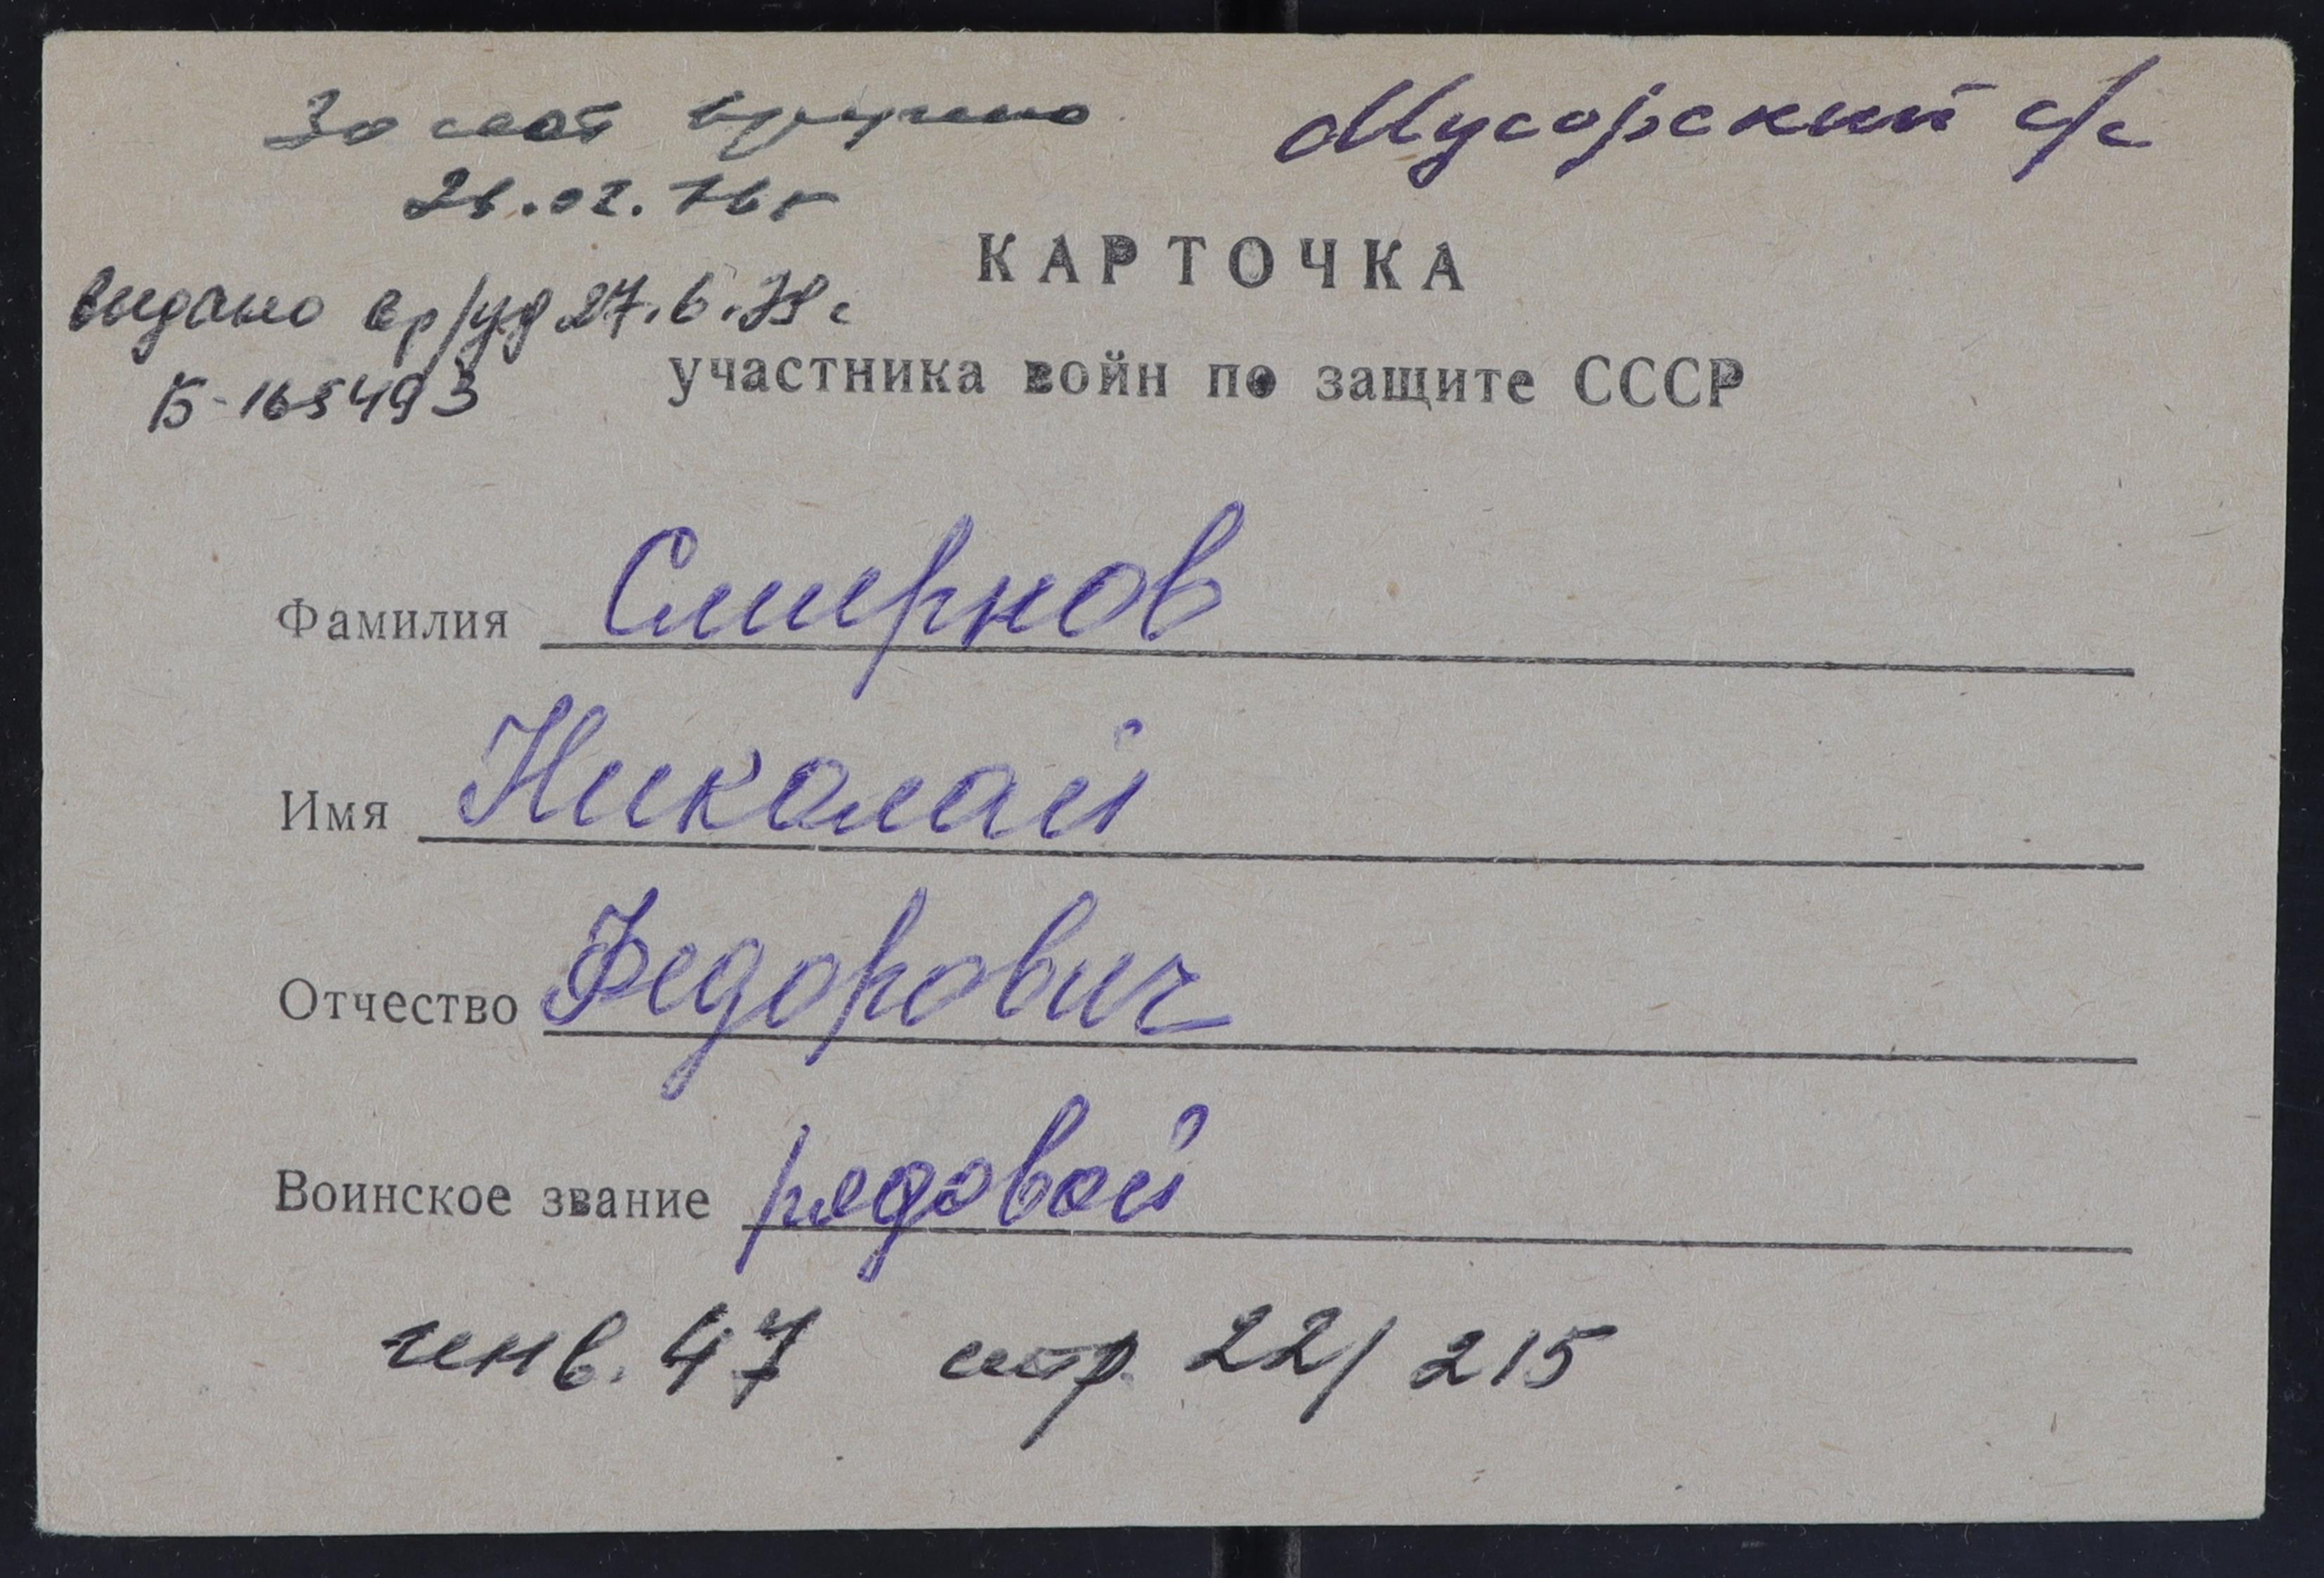 30 лет вручено
Мусорский с/с
26.02.76г
КАРТОЧКА
выдано вр/уд 27.6.79г
участника войн по защите СССР
Б-165493
Фамилия Смирнов
Имя Николай
Отчество Федорович
Воинское звание рядовой
инв. 47 стр. 22/215